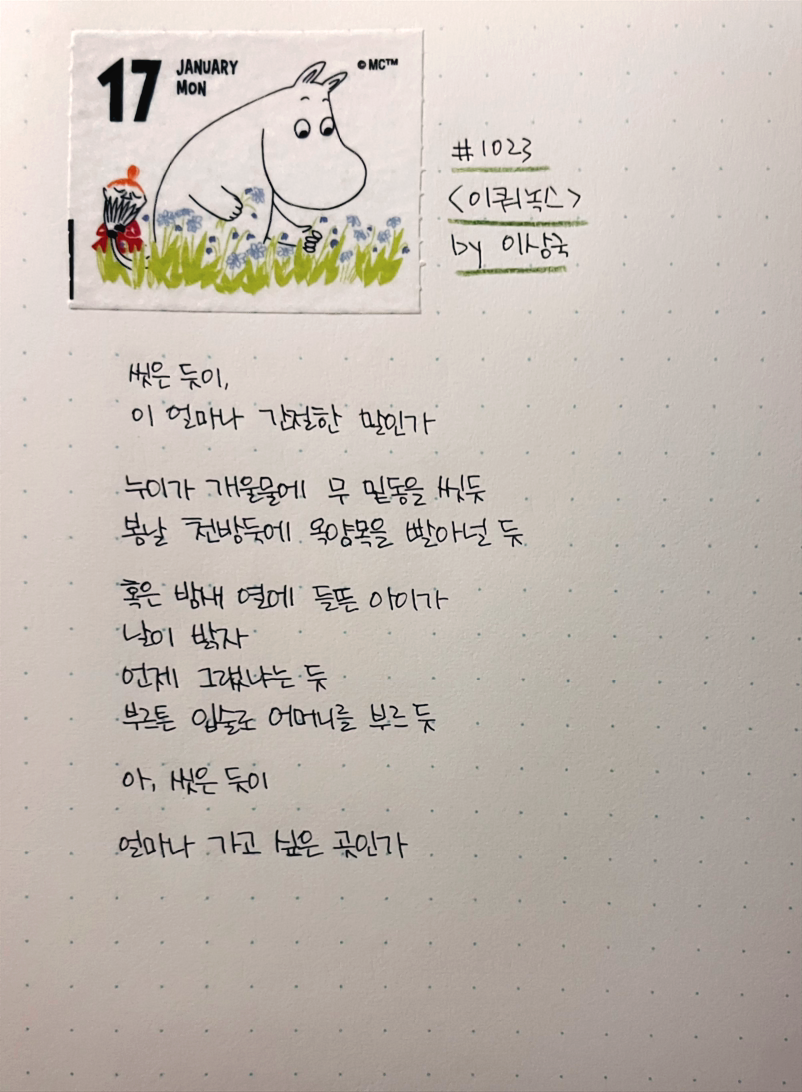 17
JANUARY
MON
©MC™
#1023
<이쿼녹스>
by 이상국
씻은 듯이,
이 얼마나 간절한 말인가
누이가 개울물에 무 밑동을 씻듯
봄날 천방둑에 옥양목을 빨아널 듯
혹은 밤새 열에 들뜬 아이가
날이 밝자
언제 그랬냐는 듯
부르튼 입술로 어머니를 부르듯
아, 씻은 듯이
얼마나 가고 싶은 곳인가